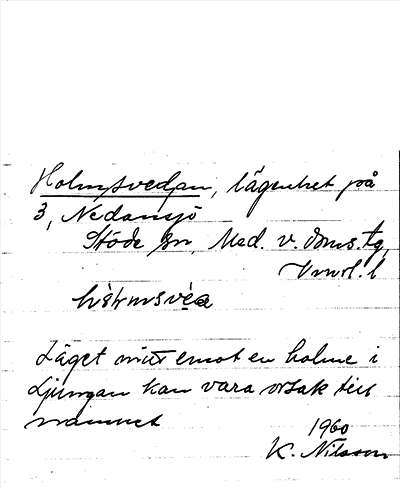 Holmsvedan, lägenhet på
3, Nedansjö
Stöde sn, Med. v. doms. tg,
Vnrl. l
hòlmsvéa
Läget mitt emot en holme i
Ljungan kan vara orsak till
namnet
1960
K. Nilsson